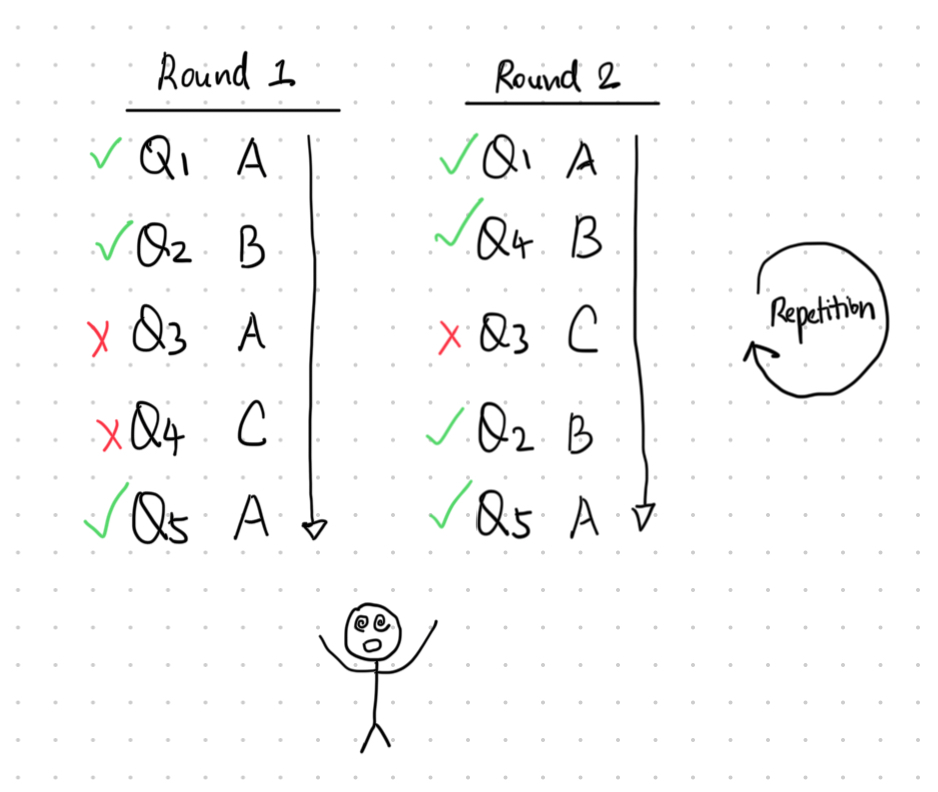 Round 1
✓ Q1 A
✓ Q2 B
X Q3 A
X Q4 C
✓ Q5 A
Round 2
✓ Q1 A
✓ Q4 B
X Q3 C
✓ Q2 B
✓ Q5 A
Repetition